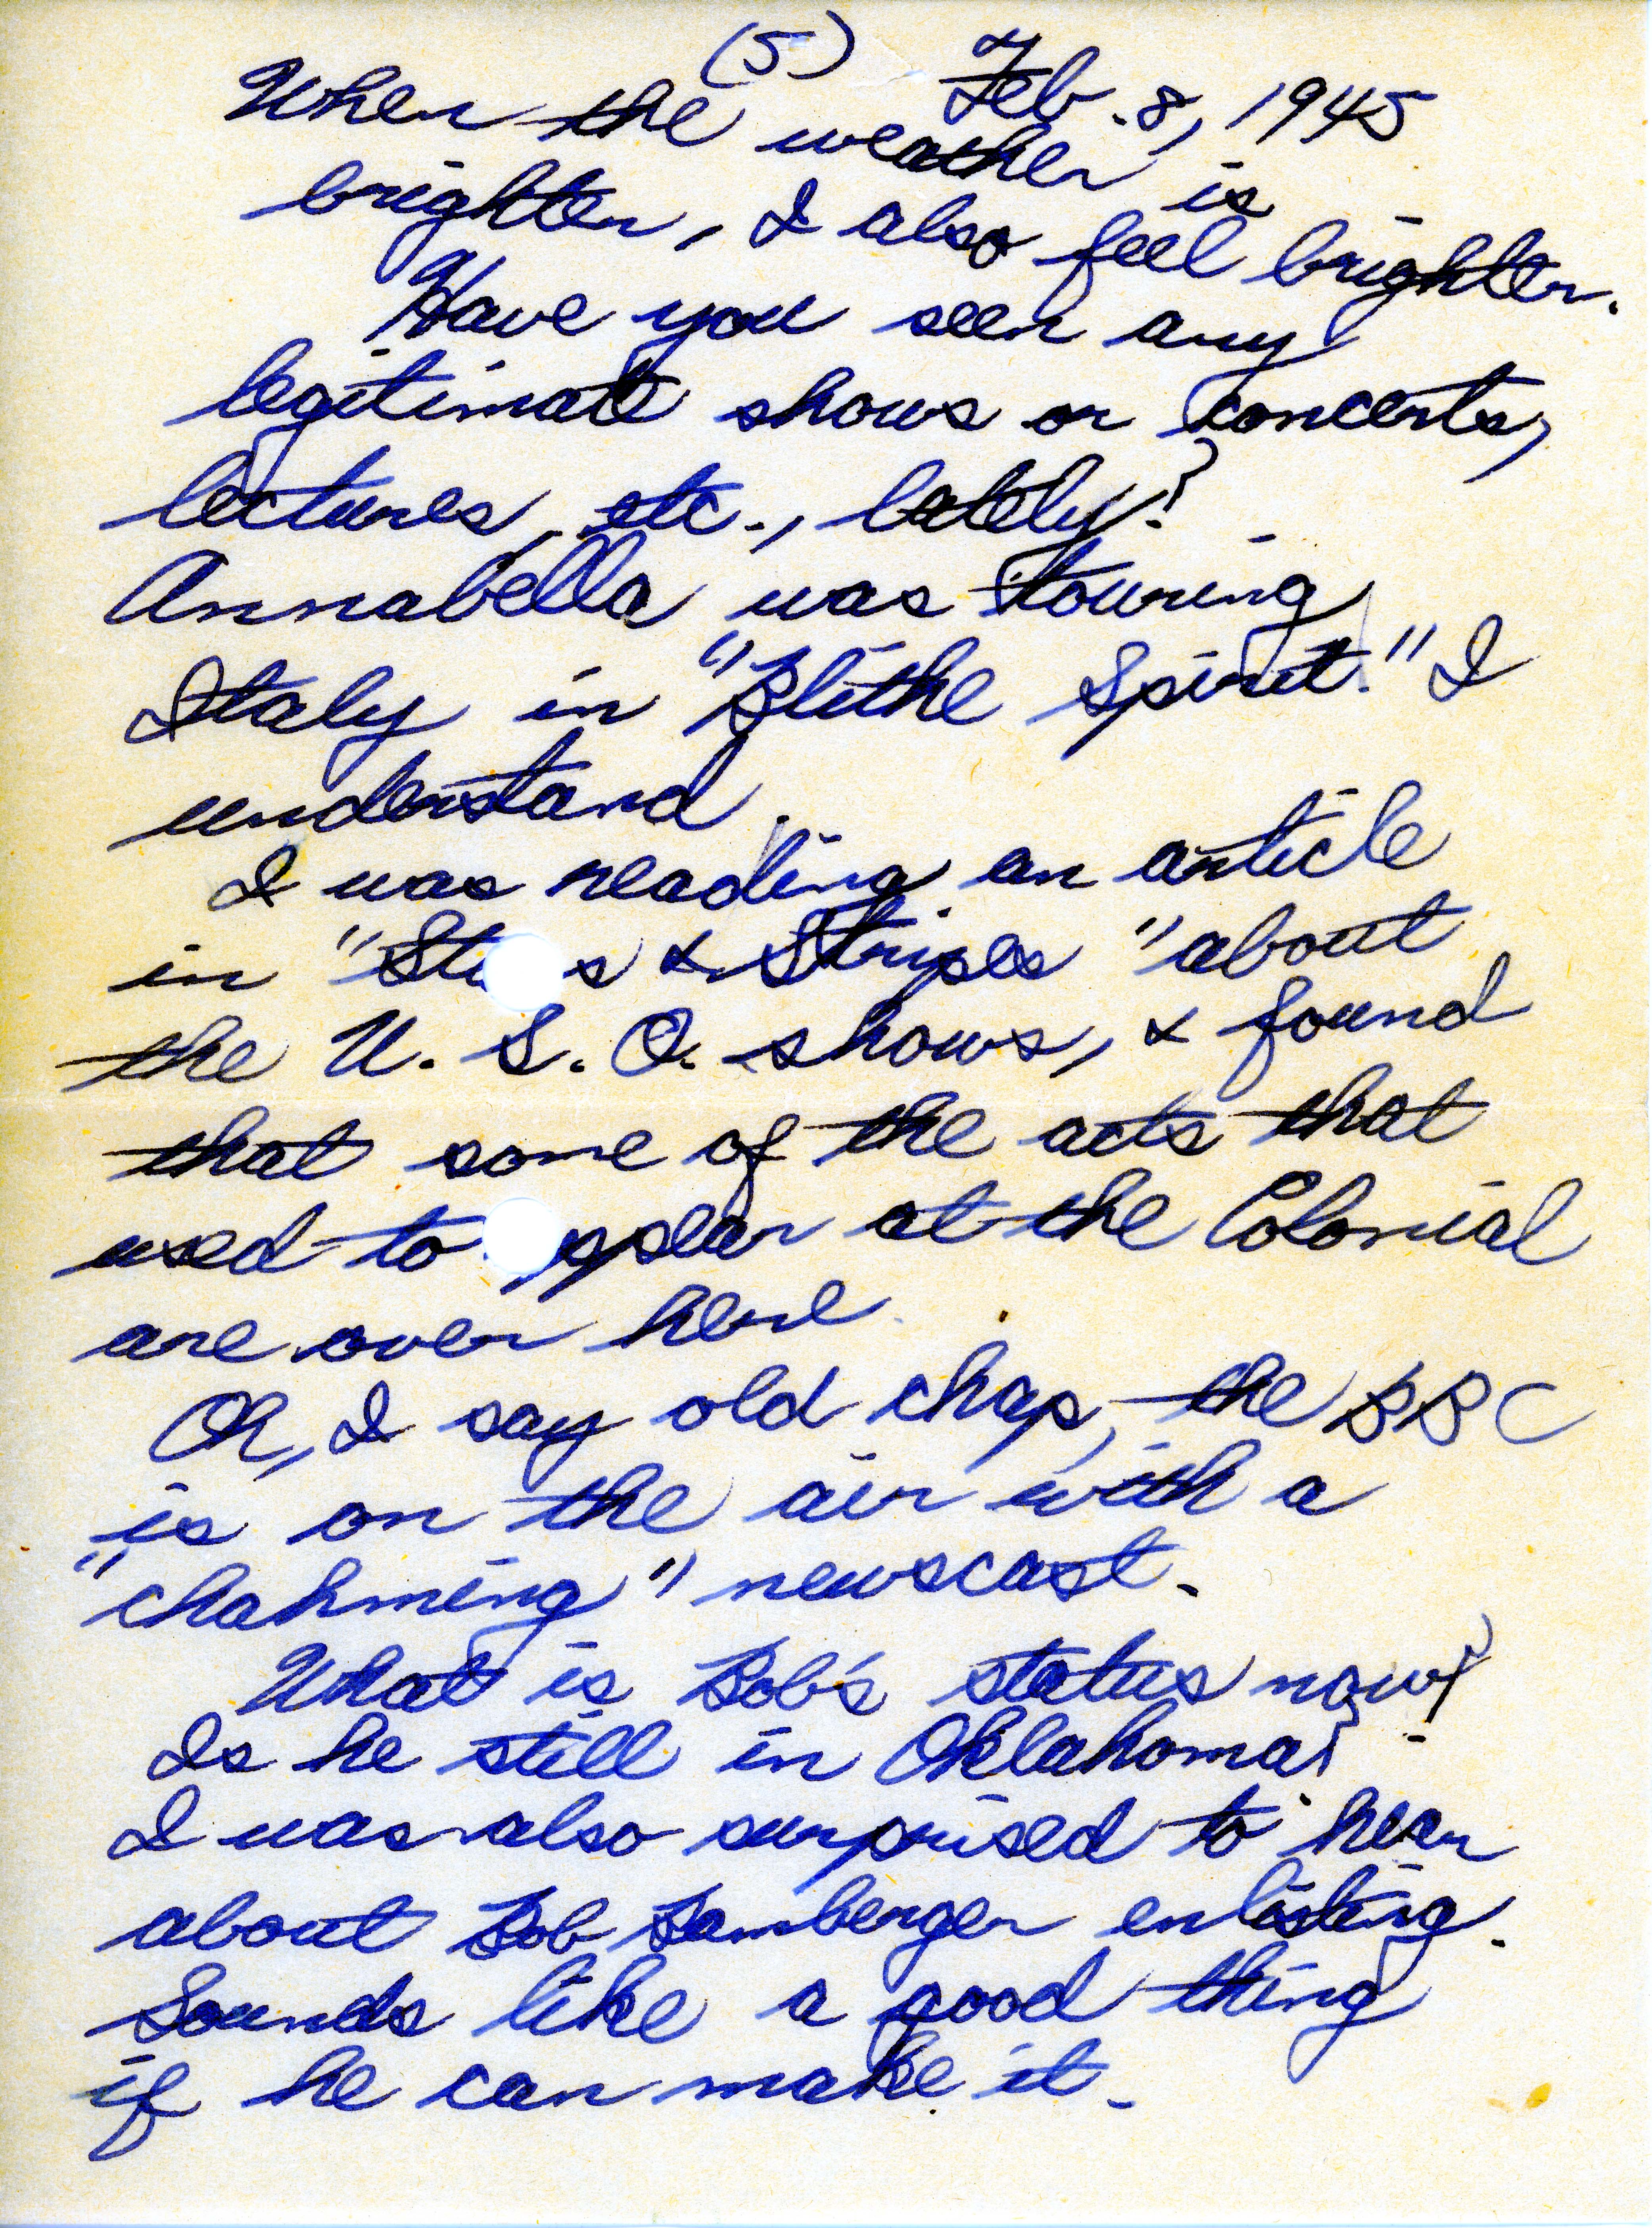 (5) Feb. 8, 1945
When the weather is
brighter, I also feel brighter.
Have you seen any
legitimate shows or concerts,
lectures, etc., lately?
Annabella was touring
Italy in "Blithe Spirit." I
understand.
I was reading an article
in "Sta s & Stripes" about
the U.S.O. shows, & found
that some of the acts that
used to ppear at the Colonial
are over here.
Oh, I say old chap, the BBC
is on the air with a
"chahming" newscast.
What is Bob's status now?
Is he still in Oklahoma?
I was also surprised to hear
about Bob Bamberger enlisting.
Sounds like a good thing
if he can make it.